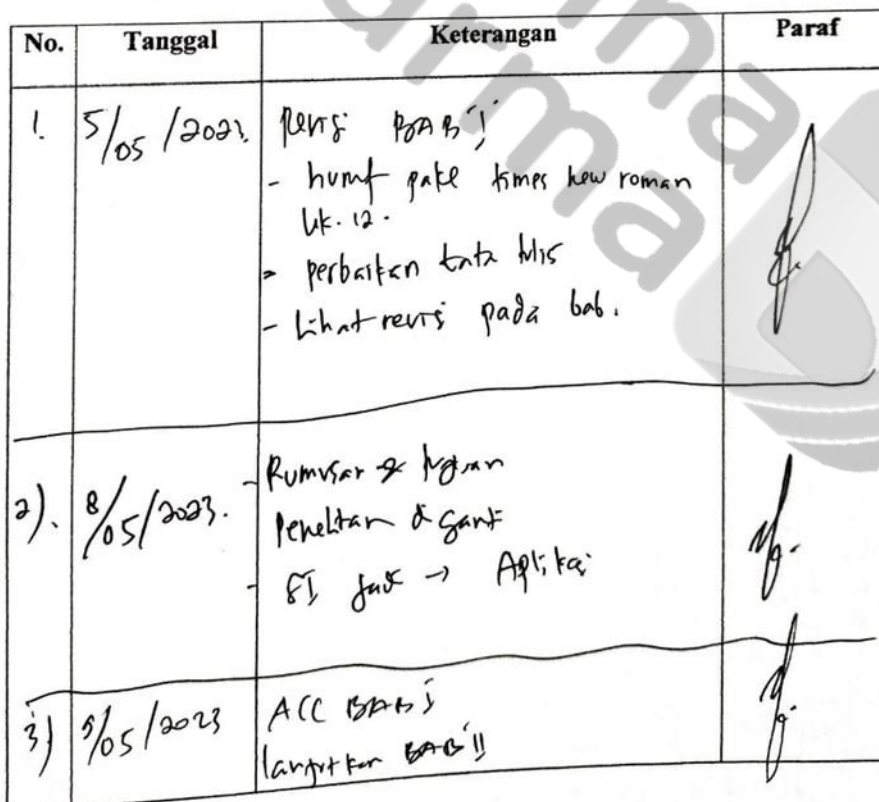 No. Tanggal Keterangan Paraf
1. 5/05/2023. Revisi BAB I
- huruf pake times new roman
uk. 12.
- perbaikan tata tulis
- Lihat revisi pada bab.
2). 8/05/2023. - Rumusan & tujuan
Penelitian di ganti
- SI jadi → Aplikasi
3) 9/05/2023 ACC BAB I
lanjutkan BAB II